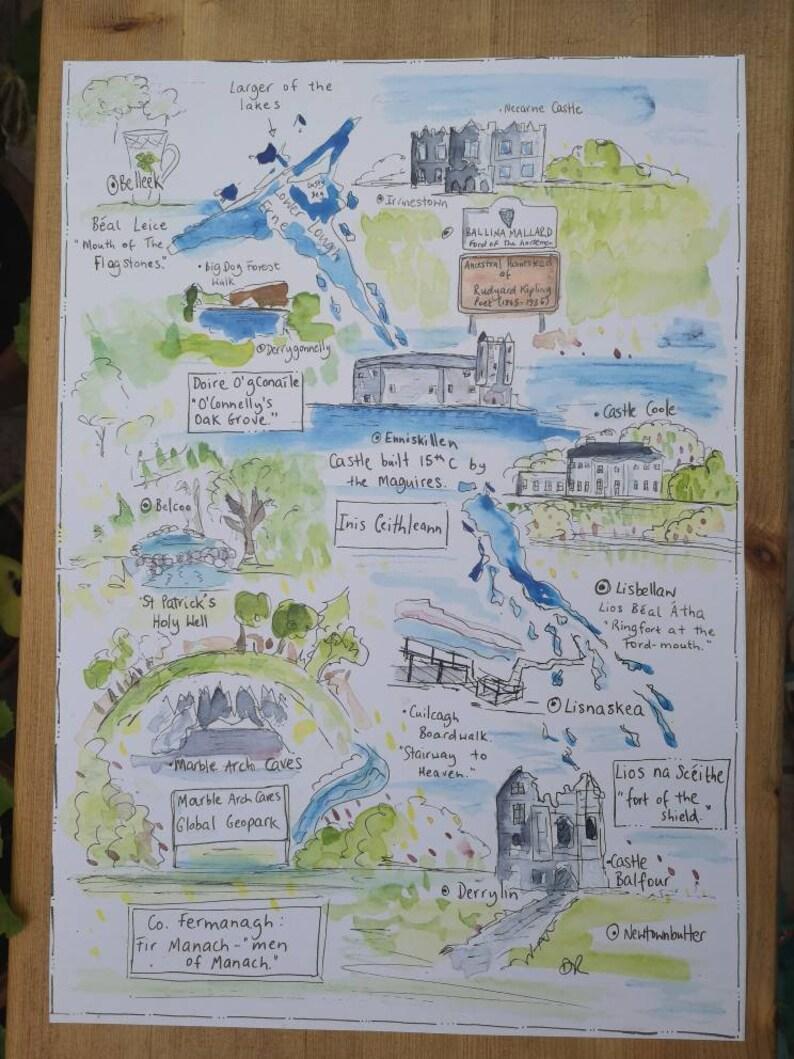 Larger of the
lakes
Necarne Castle
Belleek
Béal Leice
"Mouth of The
Flagstones."
Lower Lough
Erne
Irvinestown
BALLINAMALLARD
Ford of the horsemen
Ancestral Homestead
of
Rudyard Kipling
Poet (1865-1936)
Big Dog Forest
Walk
Derrygonnelly
Doire O'gConaile
"O'Connelly's
Oak Grove."
Castle Coole
Enniskillen
Castle built 15th C by
the Maguires.
Inis Ceithleann
Belcoo
St Patrick's
Holy Well
Lisbellaw
Lios Béal Átha
"Ringfort at the
Ford-mouth."
Lisnaskea
Cuilcagh
Boardwalk
"Stairway to
Heaven."
Marble Arch Caves
Marble Arch Caves
Global Geopark
Lios na Scéithe
"fort of the
shield."
Castle
Balfour
Derrylin
Newtownbutler
Co. Fermanagh:
Fir Manach - "men
of Manach."
DR